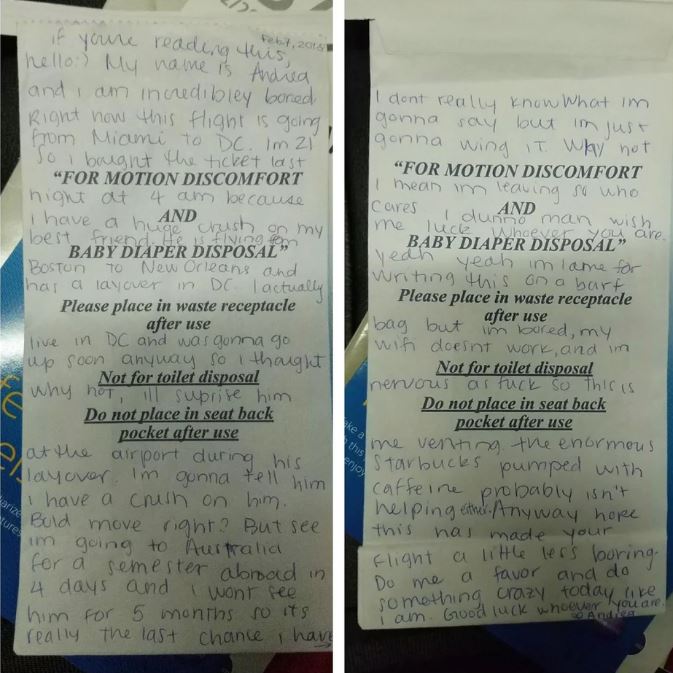 Feb 7, 2015
if youre reading this,
hello:) My name is Andrea
and i am incredibley bored.
Right now this flight is going
from Miami to DC. Im 21
so i bought the ticket last
"FOR MOTION DISCOMFORT
night at 4 am because
AND
i have a huge crush on my
best friend. He is flying from
BABY DIAPER DISPOSAL"
Boston to New Orleans and
has a layover in DC. I actually
Please place in waste receptacle
after use
live in DC and was gonna go
up soon anyway so i thought
Not for toilet disposal
why not, ill suprise him
Do not place in seat back
pocket after use
at the airport during his
layover. Im gonna tell him
i have a crush on him.
Bold move right? But see
im going to Australia
for a semester abroad in
4 days and i wont see
him for 5 months so its
really the last chance i have
I dont really know what im
gonna say but im just
gonna wing it. Why not
"FOR MOTION DISCOMFORT
I mean im leaving so who
AND
cares. I dunno man wish
me luck whoever you are.
BABY DIAPER DISPOSAL"
yeah yeah im lame for
writing this on a barf
Please place in waste receptacle
after use
bag but im bored, my
wifi doesnt work, and im
Not for toilet disposal
nervous as fuck so this is
Do not place in seat back
pocket after use
me venting the enormous
Starbucks pumped with
caffeine probably isn't
helping either. Anyway hope
this has made your
flight a little less boring.
Do me a favor and do
something crazy today like
i am. Good luck whoever you are.
Andrea